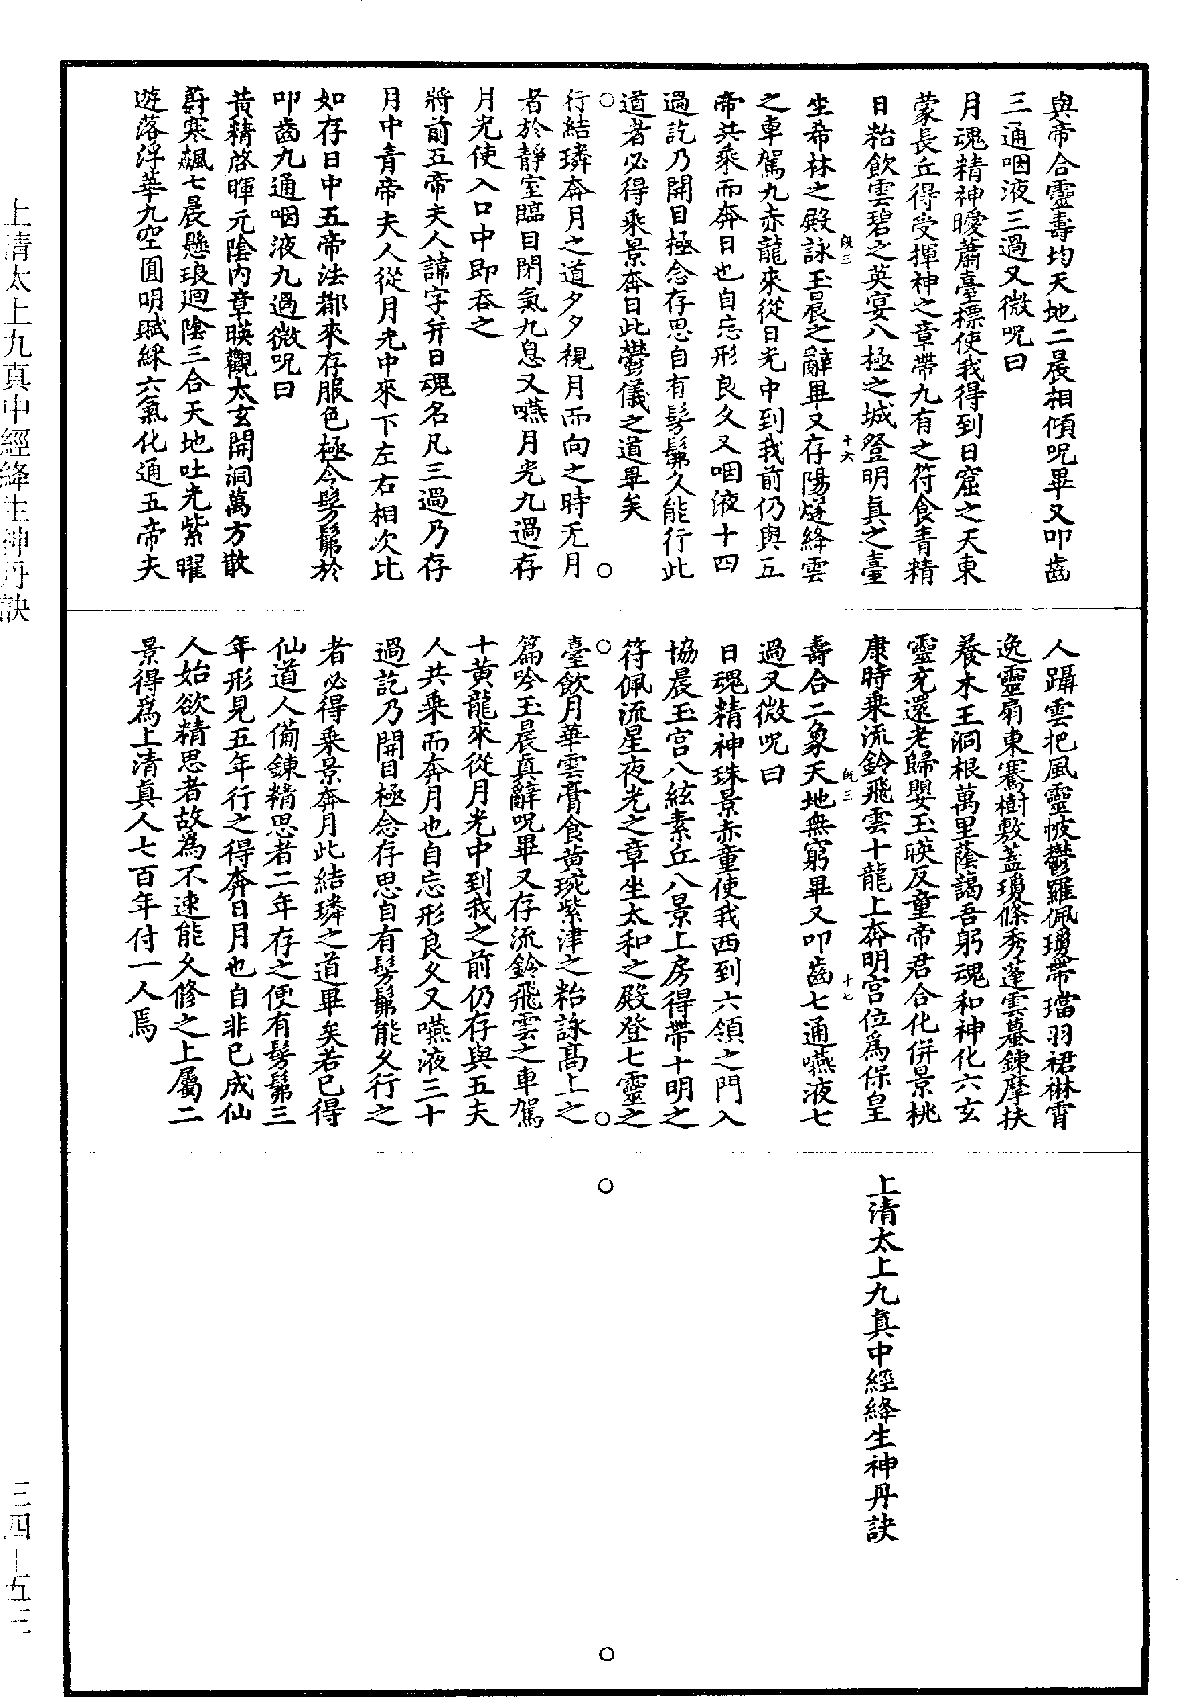 與帝合靈壽均天地二晨相傾呪畢又叩齒
三通咽液三過又微呪曰
月魂精神曖蕭臺標使我得到日窟之天東
蒙長丘得受揮神之章帶九有之符食青精
日粭飲雲碧之英宴八極之城登明真之臺
十六
生希林之殿詠玉晨之辭畢又存陽燧絳雲
之車駕九赤龍來從日光中到我前仍與五
帝共乘而奔日也自忘形良久又咽液十四
過訖乃開目極念存思自有髣髴久能行此
道者必得乘景奔日此鬱儀之道畢矣
行結璘奔月之道夕夕視月而向之時无月
者於靜室臨目閉氣九息又嚥月光九過存
月光使入口中即吞之
將前五帝夫人諱字并日魂名凡三過乃存
月中青帝夫人從月光中來下左右相次比
如存日中五帝法都來存服色極令髣髴於
叩齒九通咽液九過微呪曰
黃精啓暉元陰內章暎觀太玄開洞萬方散
蔚寒飆七晨懸琅廻陰三合天地吐光紫曜
遊落浮華九空圓明賦綵六氣化通五帝夫
人躡雲把風靈帔鬱羅佩瓊帶璫羽裙綝霄
逸靈扇東騫樹敷蓋瓊條秀蓬雲蓁鍊摩扶
養木王洞根萬里蔭藹吾躬魂和神化六玄
靈充還老歸嬰玉暎反童帝君合化併景桃
康時乘流鈴飛雲十龍上奔明宮位為保皇
十七
壽合二象天地無窮畢又叩齒七通嚥液七
過又微呪曰
日魂精神珠景赤童使我西到六領之門入
協晨玉宮八絃素丘八景上房得帶十明之
符佩流星夜光之章坐太和之殿登七靈之
臺飲月華雲膏食黃琬紫津之粭詠高上之
篇吟玉晨真辭呪畢又存流鈴飛雲之車駕
十黃龍來從月光中到我之前仍存與五夫
人共乘而奔月也自忘形良久又嚥液三十
過訖乃開目極念存思自有髣髴能久行之
者必得乘景奔月此結璘之道畢矣若已得
仙道人備鍊精思者二年存之便有髣髴三
年形見五年行之得奔日月也自非已成仙
人始欲精思者故為不速能久修之上屬二
景得為上清真人七百年付一人焉
上清太上九真中經絳生神丹訣
上清太上九真中經絳生神丹訣
三四—五三